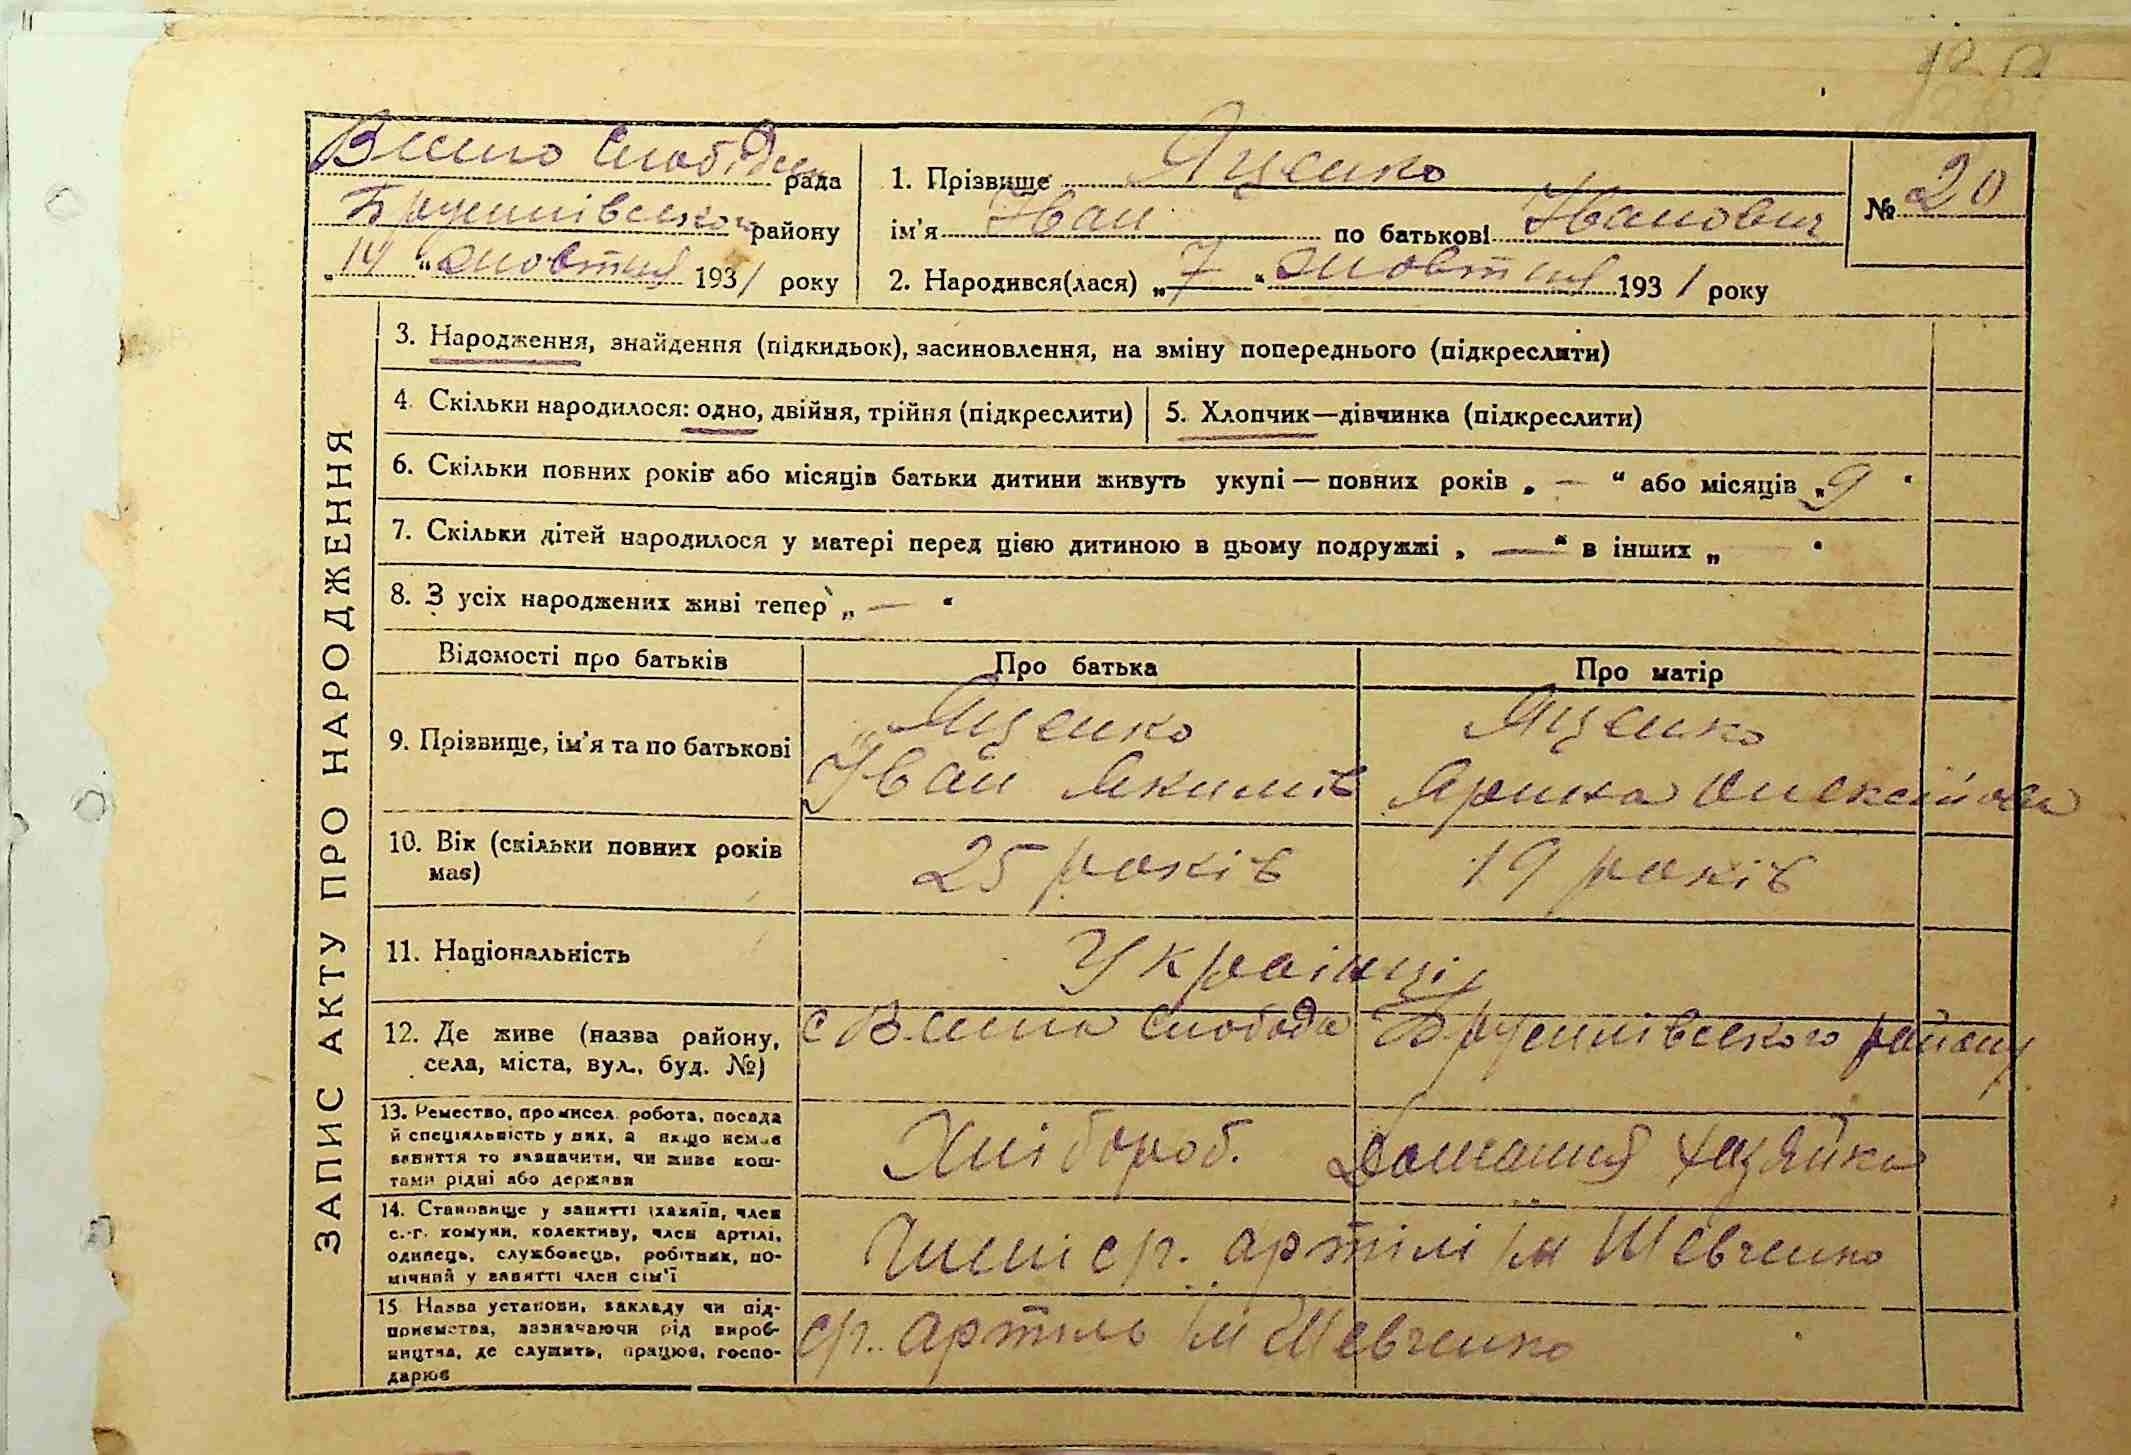 Вино Слобідськ рада
Брусилівського району
„14" жовтня 1931 року
1. Прізвище Яценко
№ 20
ім'я Іван по батькові Іванович
2. Народився(лася) „7" жовтня 1931 року
ЗАПИС АКТУ ПРО НАРОДЖЕННЯ
3. Народження, знайдення (підкидьок), засиновлення, на зміну попереднього (підкреслити)
4. Скільки народилося: одно, двійня, трійня (підкреслити)
5. Хлопчик—дівчинка (підкреслити)
6. Скільки повних років або місяців батьки дитини живуть укупі — повних років „ — " або місяців „9"
7. Скільки дітей народилося у матері перед цією дитиною в цьому подружжі „ — " в інших „ — "
8. З усіх народжених живі тепер „ — "
Відомості про батьків
Про батька
Про матір
9. Прізвище, ім'я та по батькові
Яценко
Іван Якимів
Яценко
Ярина Олексійова
10. Вік (скільки повних років
має)
25 років
19 років
11. Національність
Українці
12. Де живе (назва району,
села, міста, вул., буд. №)
с Слобода Брусилівського району
13. Ремество, промисел, робота, посада
й спеціяльність у них, а якщо немає
заняття то зазначити, чи живе кош-
тами рідні або держави
Хлібороб.
Домашня хазяйка
14. Становище у занятті (хазяїн, член
с.-г. комуни, колективу, член артілі,
одинець, службовець, робітник, по-
мічний у занятті член сім'ї
Член ср. артілі ім Шевченко
15. Назва установи, закладу чи під-
приємства, зазначаючи рід вироб-
ництва, де служить, працює, госпо-
дарює
ср. артіль ім Шевченко